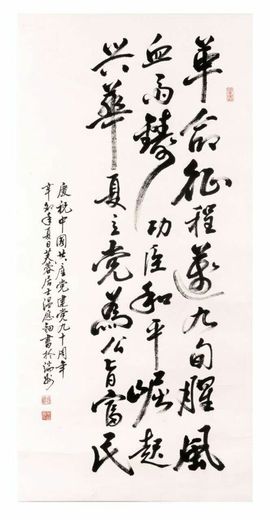 革命征程邁九旬腥風
血雨鑄功臣和平崛起
兴華夏立党為公旨富民
慶祝中國共產党建党九十周年
辛卯年夏日芙蓉居士温恩書於端州